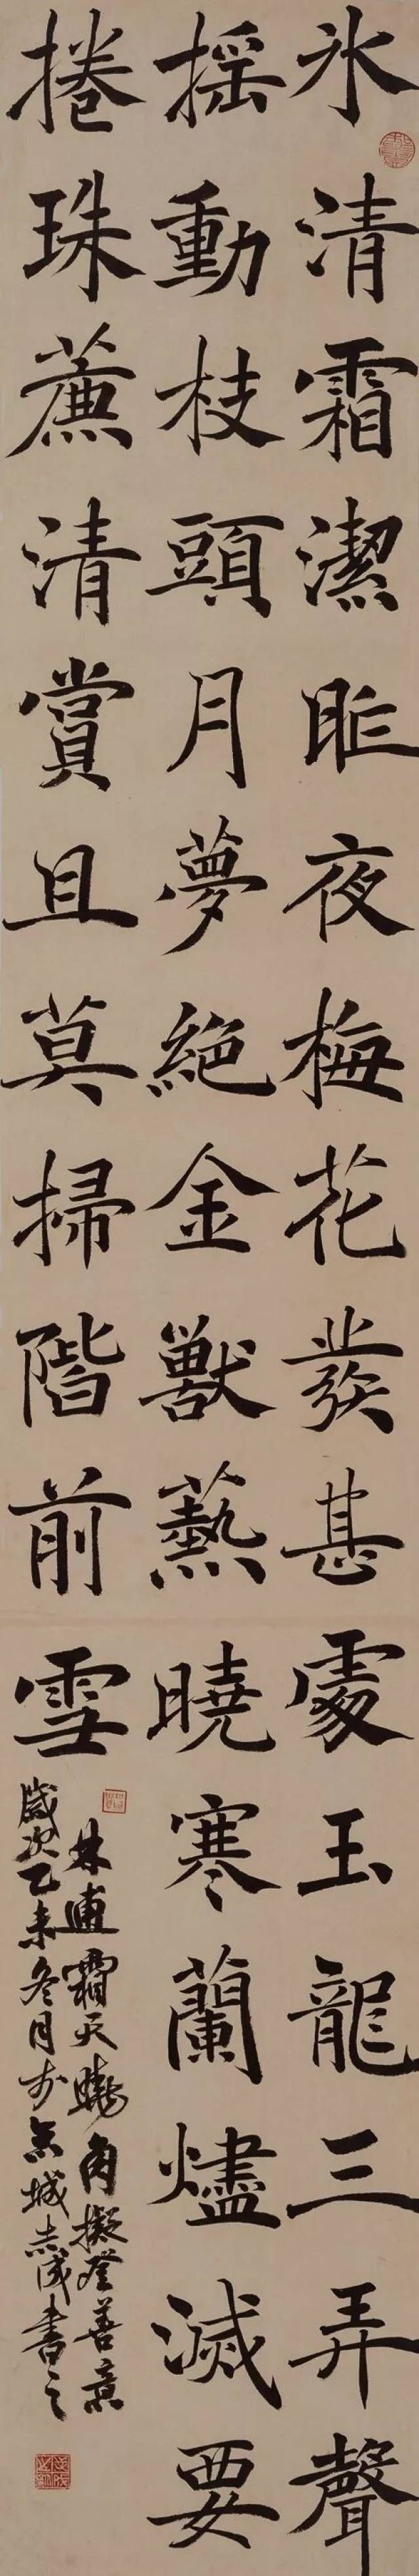 氷清霜潔昨夜梅花發甚處玉龍三弄聲
搖動枝頭月夢絕金獸爇曉寒蘭燼滅要
捲珠薕清賞且莫掃階前雪
林逋霜天曉角擬登善意
歲次乙未冬月於無城志成書之